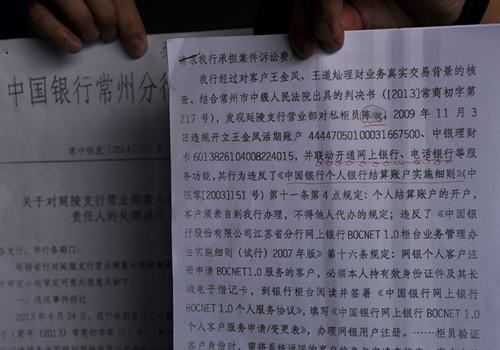 中国银行常州分行
常中银发〔2014〕
关于对延陵支行营业部重大
责任人的处理决定
各支行、市行各部门：
一、违规事件经过
2013年6月24日，我行收到常州
请求我行承担案件诉讼费
我行经过对客户王金凤、王道灿理财业务真实交易背景的核
查、结合常州市中级人民法院出具的判决书（[2013]常商初字第
217号），发现延陵支行营业部对私柜员陈 ，2009年11月3
日违规开立王金凤活期账户444470510100031667500、中银理财
卡6013826104008224015，并联动开通网上银行、电话银行等服
务功能，其行为违反了《中国银行个人银行结算账户实施细则》（中
银零[2003]151号）第十一条第4点规定：个人结算账户的开户，
客户须亲自到我行办理，不得他人代办的规定；违反了《中国银
行股份有限公司江苏省分行网上银行BOCNET1.0柜台业务管理办
法实施细则（试行）2007年版》第十六条规定：网银个人客户注
册申请BOCNET1.0服务的客户，必须本人持有效身份证件及其长
城电子借记卡，到银行柜台阅读并签署《中国银行网上银行
BOCNET1.0个人服务协议》，填写《中国银行网上银行BOCNET1.0
个人客户服务申请/变更表》，办理网银用户注册。……柜员验证